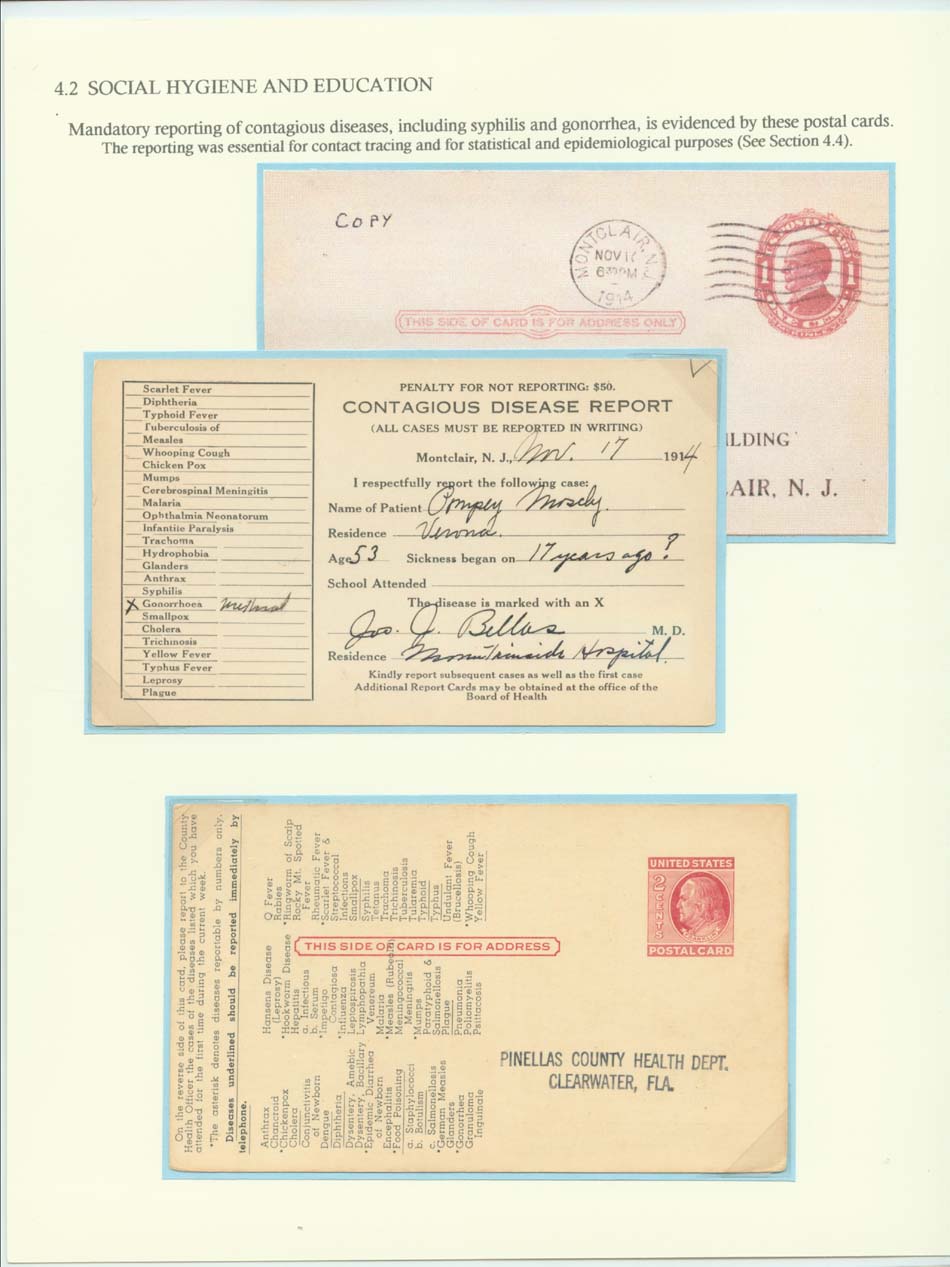 4.2 SOCIAL HYGIENE AND EDUCATION
Mandatory reporting of contagious diseases, including syphilis and gonorrhea, is evidenced by these postal cards.
The reporting was essential for contact tracing and for statistical and epidemiological purposes (See Section 4.4).
COPY
MONTCLAIR, N.J.
NOV 17
6 PM
1914
1 1
(THIS SIDE OF CARD IS FOR ADDRESS ONLY)
ILDING
AIR, N. J.
Scarlet Fever
Diphtheria
Typhoid Fever
Tuberculosis of
Measles
Whooping Cough
Chicken Pox
Mumps
Cerebrospinal Meningitis
Malaria
Ophthalmia Neonatorum
Infantile Paralysis
Trachoma
Hydrophobia
Glanders
Anthrax
Syphilis
X Gonorrhoea urethral
Smallpox
Cholera
Trichinosis
Yellow Fever
Typhus Fever
Leprosy
Plague
PENALTY FOR NOT REPORTING: $50.
CONTAGIOUS DISEASE REPORT
(ALL CASES MUST BE REPORTED IN WRITING)
Montclair, N. J., Nov. 17 1914
I respectfully report the following case:
Name of Patient Pompey Mosely.
Residence Verona.
Age 53 Sickness began on 17 years ago?
School Attended
The disease is marked with an X
Jos. J. Bellas M. D.
Residence Mountainside Hospital.
Kindly report subsequent cases as well as the first case
Additional Report Cards may be obtained at the office of the
Board of Health
On the reverse side of this card, please report to the County
Health Officer the cases of the diseases listed which you have
attended for the first time during the current week.
*The asterisk denotes diseases reportable by numbers only.
Diseases underlined should be reported immediately by
telephone.
Anthrax
Chancroid
*Chickenpox
Cholera
Conjunctivitis
of Newborn
Dengue
Diphtheria
Dysentery, Amebic
Dysentery, Bacillary
*Epidemic Diarrhea
of Newborn
Encephalitis
*Food Poisoning
a. Staphylococci
b. Botulism
c. Salmonellosis
*German Measles
Glanders
*Gonorrhea
Granuloma
Inguinale
Hansens Disease
(Leprosy)
*Hookworm Disease
Hepatitis
a. Infectious
b. Serum
*Impetigo
Contagiosa
*Influenza
Leptospirosis
Lymphopathia
Venereum
Malaria
*Measles (Rubeola)
Meningococcal
Meningitis
*Mumps
Paratyphoid &
Salmonellosis
Plague
Pneumonia
Poliomyelitis
Psittacosis
Q Fever
Rabies
*Ringworm of Scalp
Rocky Mt. Spotted
Fever
Rheumatic Fever
*Scarlet Fever &
Streptococcal
Infections
Smallpox
Syphilis
Tetanus
Trachoma
Trichinosis
Tuberculosis
Tularemia
Typhoid
Typhus
Undulant Fever
(Brucellosis)
*Whooping Cough
Yellow Fever
THIS SIDE OF CARD IS FOR ADDRESS
UNITED STATES
2 CENTS
FRANKLIN
POSTAL CARD
PINELLAS COUNTY HEALTH DEPT.
CLEARWATER, FLA.